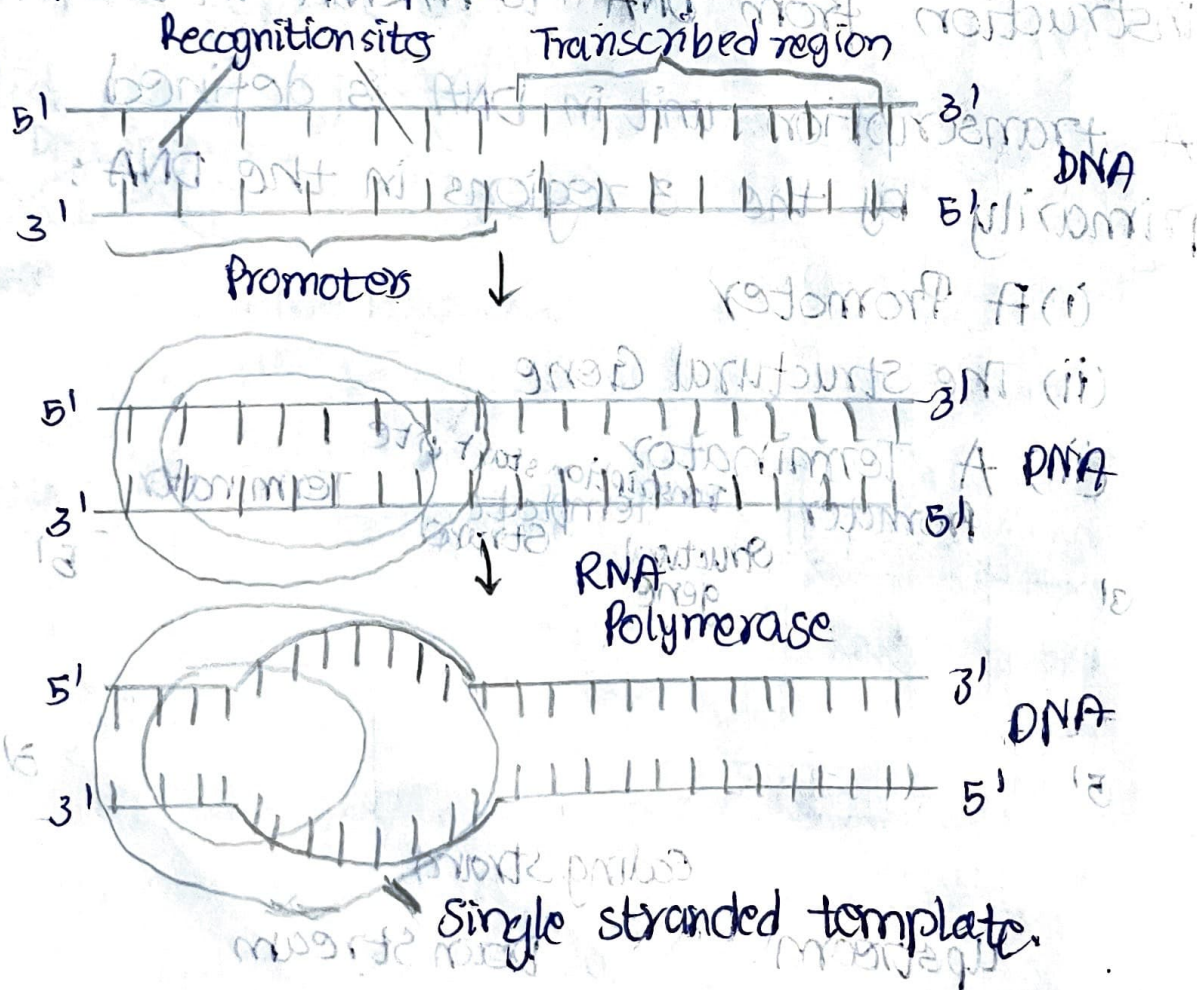 Recognition sites Transcribed region
5' 3'
DNA
3' 5'
Promoters
5' 3'
DNA
3' 5'
RNA
Polymerase
5' 3'
DNA
3' 5'
Single stranded template.